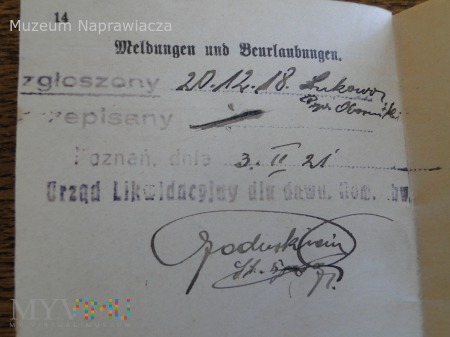 Muzeum Naprawiacza
14
Meldungen und Beurlaubungen.
zgłoszony 20.12.18. Łukowo
pow. Oborniki
zepisany
Poznań, dnia 3. II 21
Urząd Likwidacyjny dla dawn.
MYVIMU